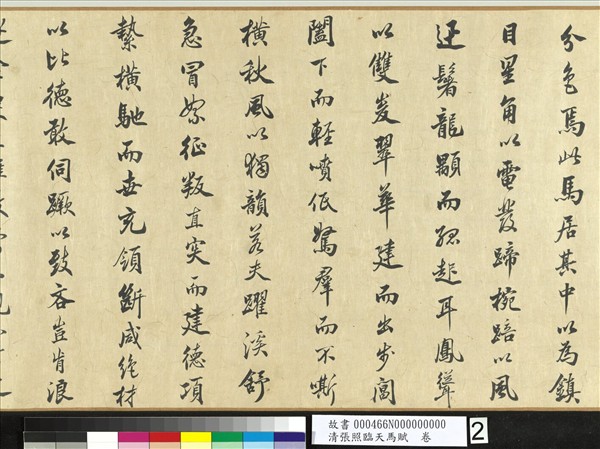 分色焉此馬居其中以為鎮
目星角以電發蹄椀踣以風
迅鬐龍顒而孤起耳鳳聳
以雙峻翠華建而出步閶
闔下而輕噴低駑羣而不嘶
橫秋風以獨韻若夫躍溪舒
急冒絮征叛直突而建德項
縶橫馳而世充領斷咸絕材
以比德敢伺蹶以致吝豈肯浪
故書 000466N000000000
清張照臨天馬賦 卷
2